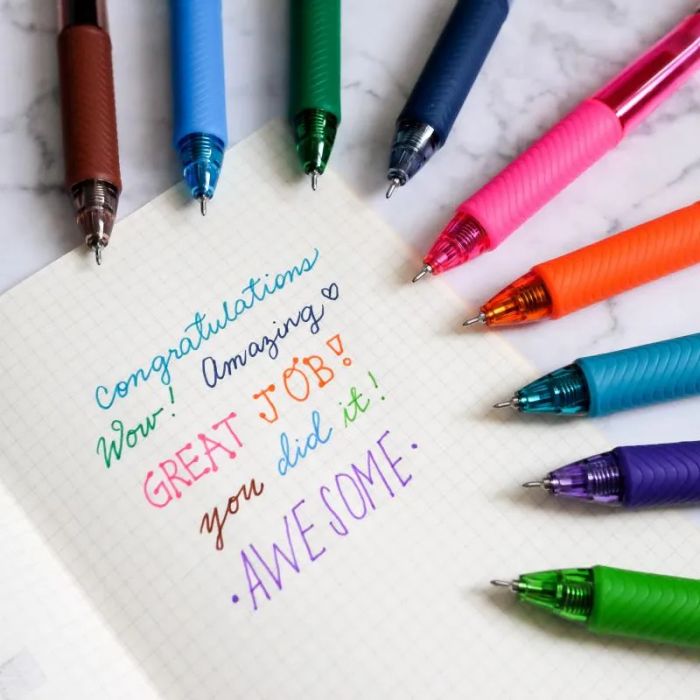 congratulations
Wow! Amazing♡
GREAT JOB!
you did it!
•AWESOME•